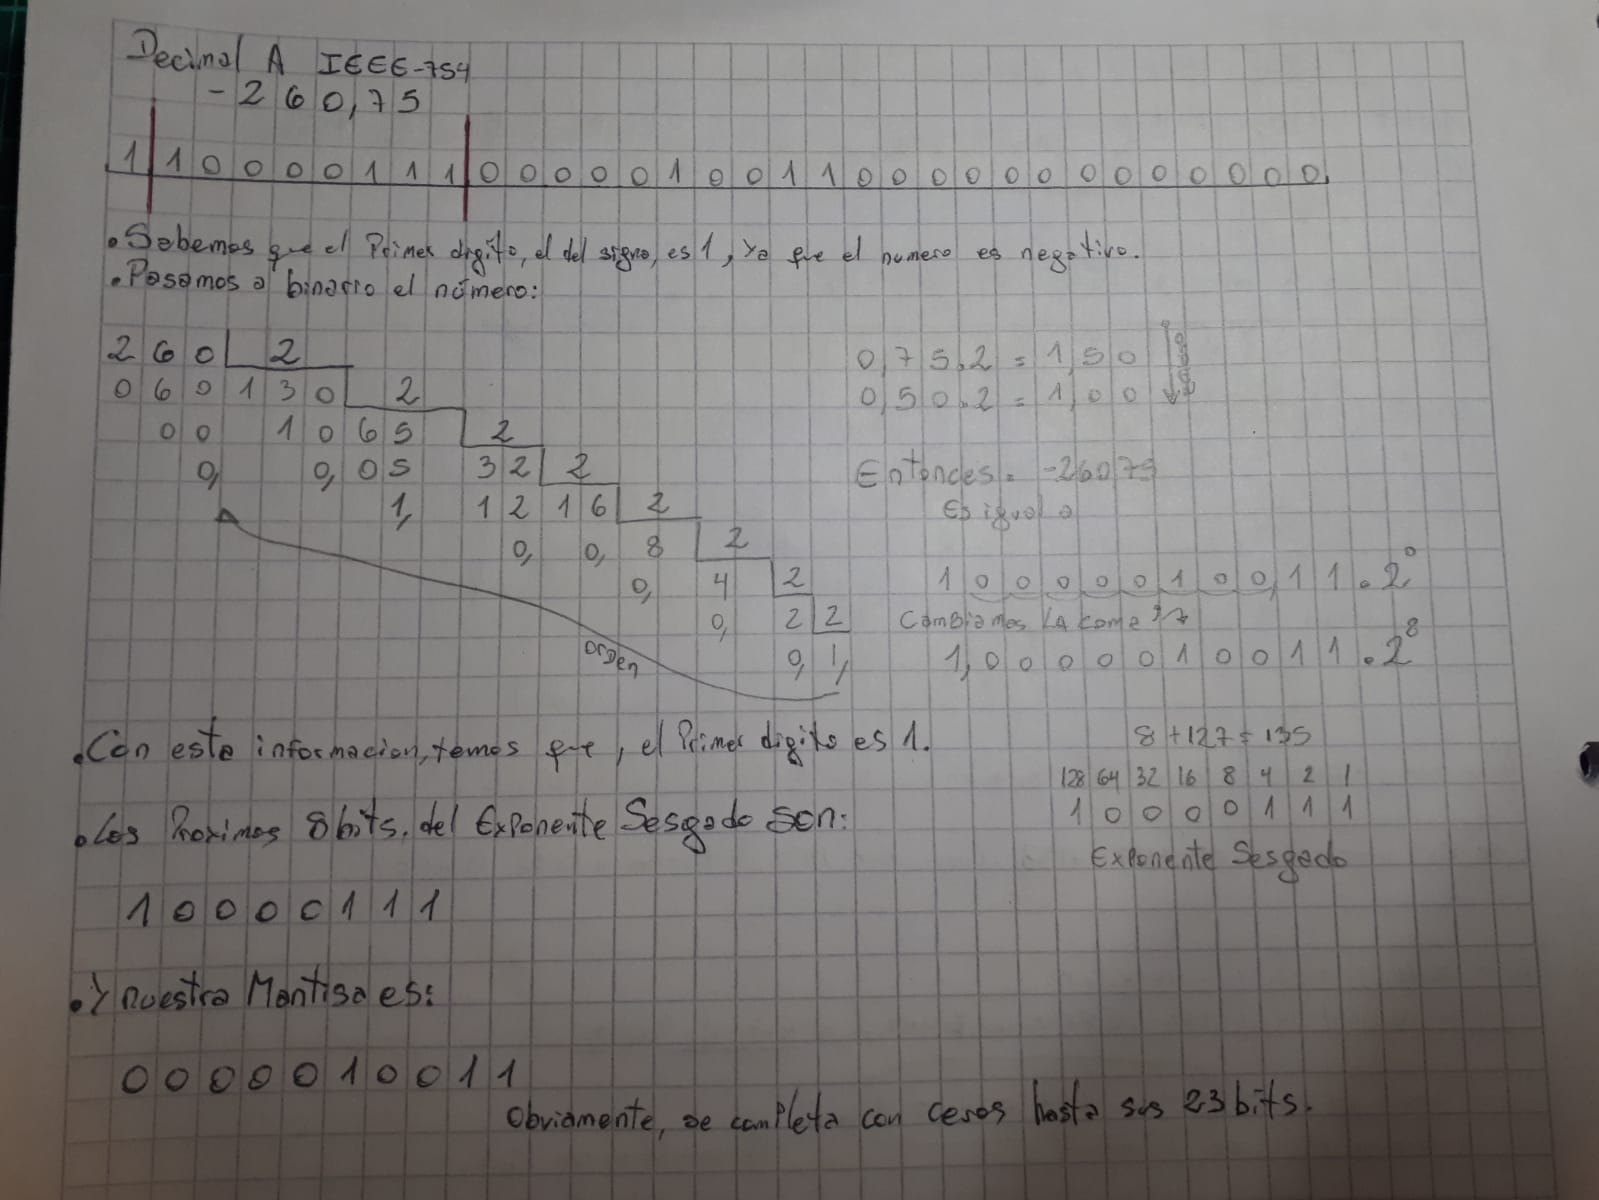 Decimal A IEEE-754
-260,75
1 10000111 00000100110000000000000
• Sabemos que el Primer digito, el del signo, es 1, ya que el numero es negativo.
• Pasamos a binario el número:
260 2
060 130 2
00 10 65 2
0, 0, 05 32 2
1, 12 16 2
0, 0, 8 2
0, 4 2
0, 2 2
0, 1,
orden
0,75.2 = 1,50
0,50.2 = 1,00
Entonces: -26075
Es igual a
1000001 00,11.2⁰
Cambiamos la coma
1,0000010011.2⁸
• Con esta informacion, temos que, el Primer digito es 1.
8+127=135
128 64 32 16 8 4 2 1
1 0 0 0 0 1 1 1
Exponente Sesgado
• Los Proximos 8 bits, del Exponente Sesgado son:
10000111
• Y nuestra Mantisa es:
0000010011
Obviamente, se completa con ceros hasta sus 23 bits.